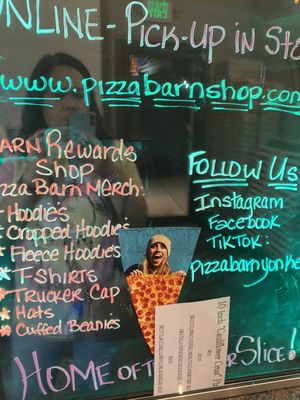 NLINE - PICK-UP IN STO
www.pizzabarnshop.com
ARN Rewards
Shop
zza Barn Merch:
Hoodies
Cropped Hoodies
Fleece Hoodies
T-Shirts
Trucker Cap
Hats
Cuffed Beanies
Follow Us
Instagram
Facebook
TikTok:
Pizzabarnyonke
10 inch "Cauliflower Crust" P
Home of T
r Slice!